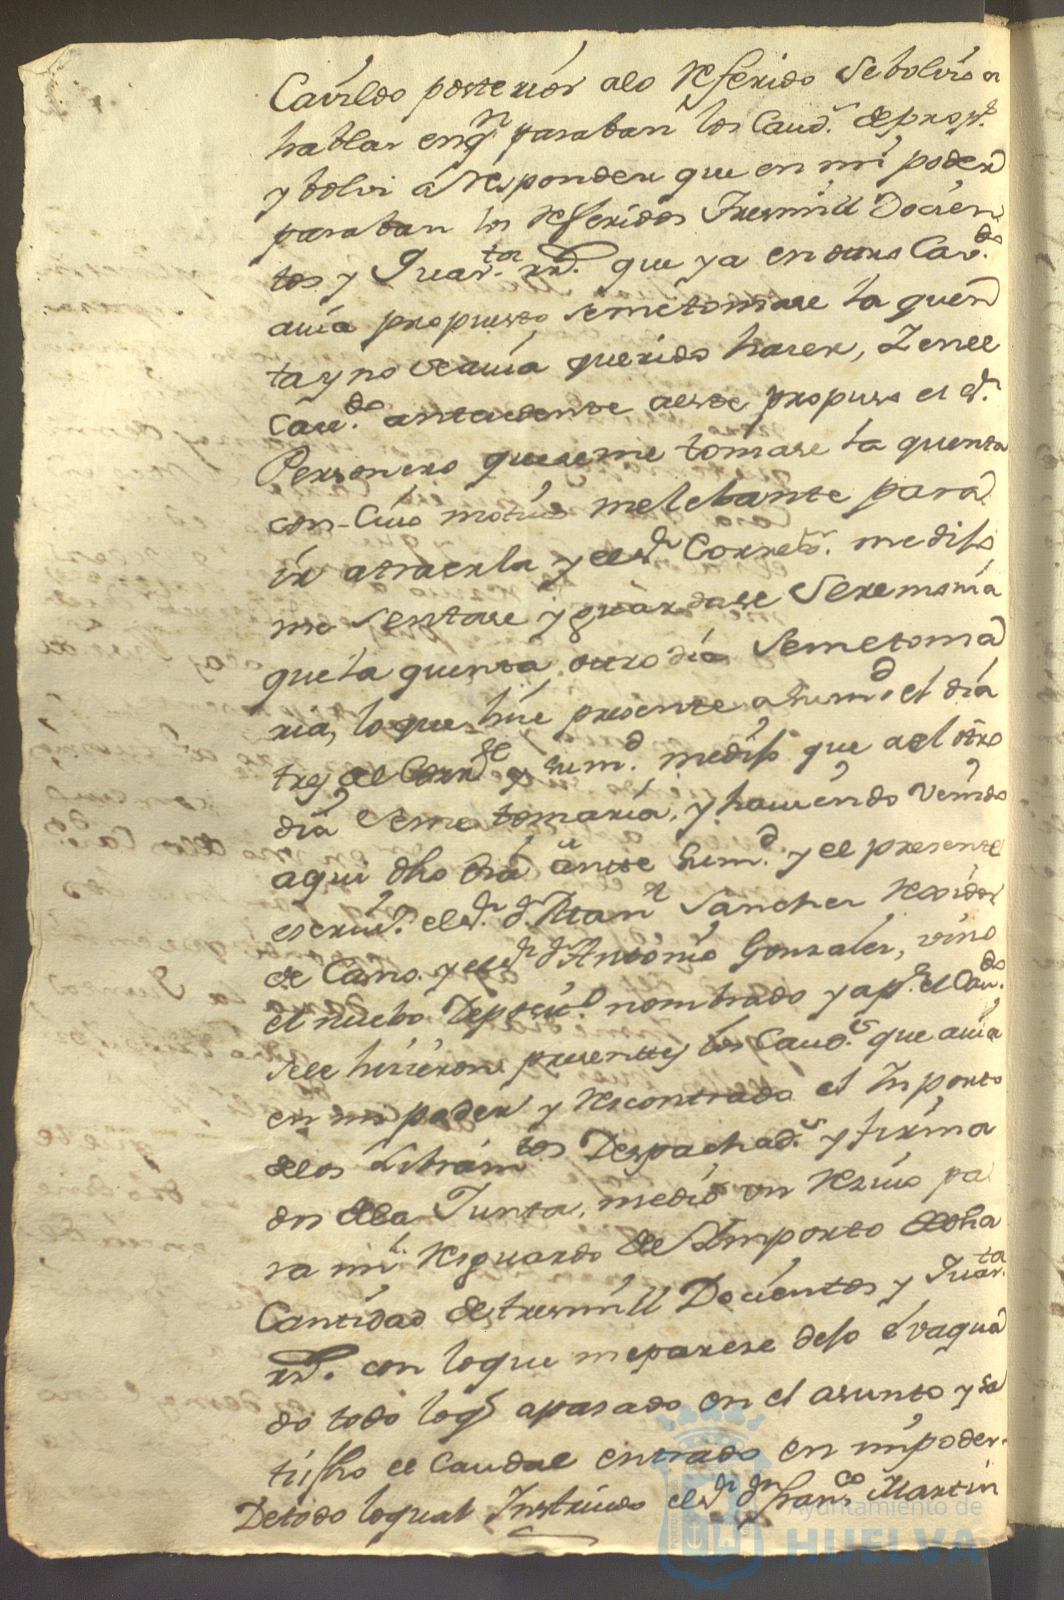 Cavildo posterior alo referido Sebolvio a
hablar en qn paraban los Caud.s de prop.s
y bolvi a responder que en mi poder
paraban los referidos Tresmill Docien
tos y Quar.tas rr.s que ya en otro Cav.do
avia propuesto semetomase la quen
ta y no se avia querido hacer, Y en el
Cav.do antecedente aeste propuso el S.r
Personero queseme tomase la quenta
con Cuio motivo melebante para
ir atraerla y el S.r Corre.r medijo
me sentase y guardase Seremonia
que la quenta otro dia Semetoma
ria, lo que hise presente asum.d el dia
tres del Corr.te y sum.d medijo que ael otro
dia Seme tomaria, y haviendo Venido
aqui dho dia ante Sum.d y el presente
escriv.o el S.r d.n Juan Sanches Rexidor
de Cano y el S.r d.n Antonio Gonzales, vino
el nuebo Deposit.o nombrado y ap.r el Cav.do
sele hisieron presenttes los Caud.s que avia
en mi poder y recontrado el Inporto
delos Libram.tos Despachad.s y firma
dos dela Junta, medio un resivo pa
ra mi resguardo del Ymporto de dha
Cantidad de tresmill Docientos y Quar.ta
rr.s con loque meparese dejo evaqua
do todo loq apasado en el asunto y sa
tisfho el Caudal entrado en mi poder.
Detodo loqual Instruido el S.r d.n Fran.co Martin
Ayuntamiento de
HUELVA